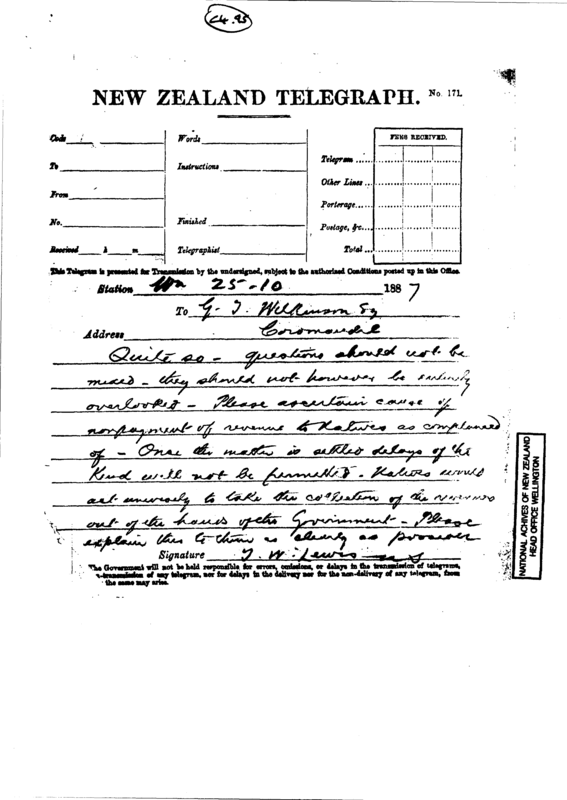 C4.95
NEW ZEALAND TELEGRAPH. No. 171.
Code
To
From
No.
Received h m
Words
Instructions
Finished
Telegraphist
FEES RECEIVED.
Telegram
Other Lines
Porterage
Postage, &c.
Total
This Telegram is presented for Transmission by the undersigned, subject to the authorised Conditions posted up in this Office.
Station Wn 25-10 1887
To G. T. Wilkinson Esq
Address Coromandel
Quite so - questions should not be
mixed - they should not however be entirely
overlooked - Please ascertain cause of
nonpayment of revenue to Natives as complained
of - Once the matter is settled delays of the
kind will not be permitted. Natives would
act unwisely to take the collection of the revenues
out of the hands of the Government - Please
explain this to them as clearly as possible
Signature T. W. Lewis
The Government will not be held responsible for errors, omissions, or delays in the transmission of telegrams,
-transmission of any telegram, nor for delays in the delivery nor for the non-delivery of any telegram, from
the same may arise.
NATIONAL ACHIVES OF NEW ZEALAND
HEAD OFFICE WELLINGTON